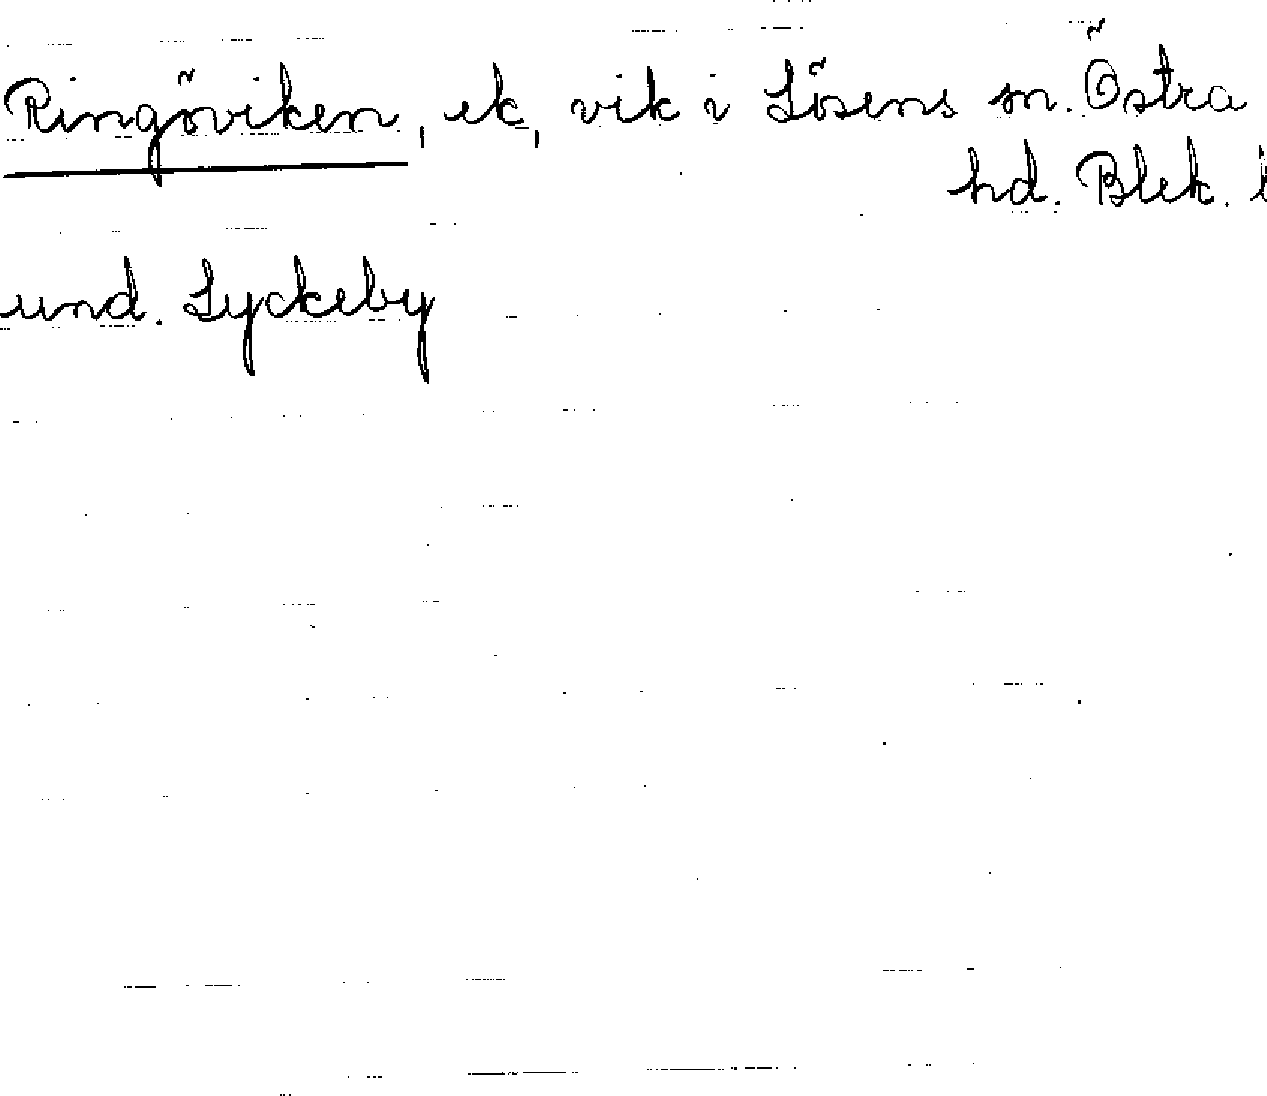 Ringöviken, ek, vik i Lösens sn. Östra
hd. Blek. l
und. Lyckeby